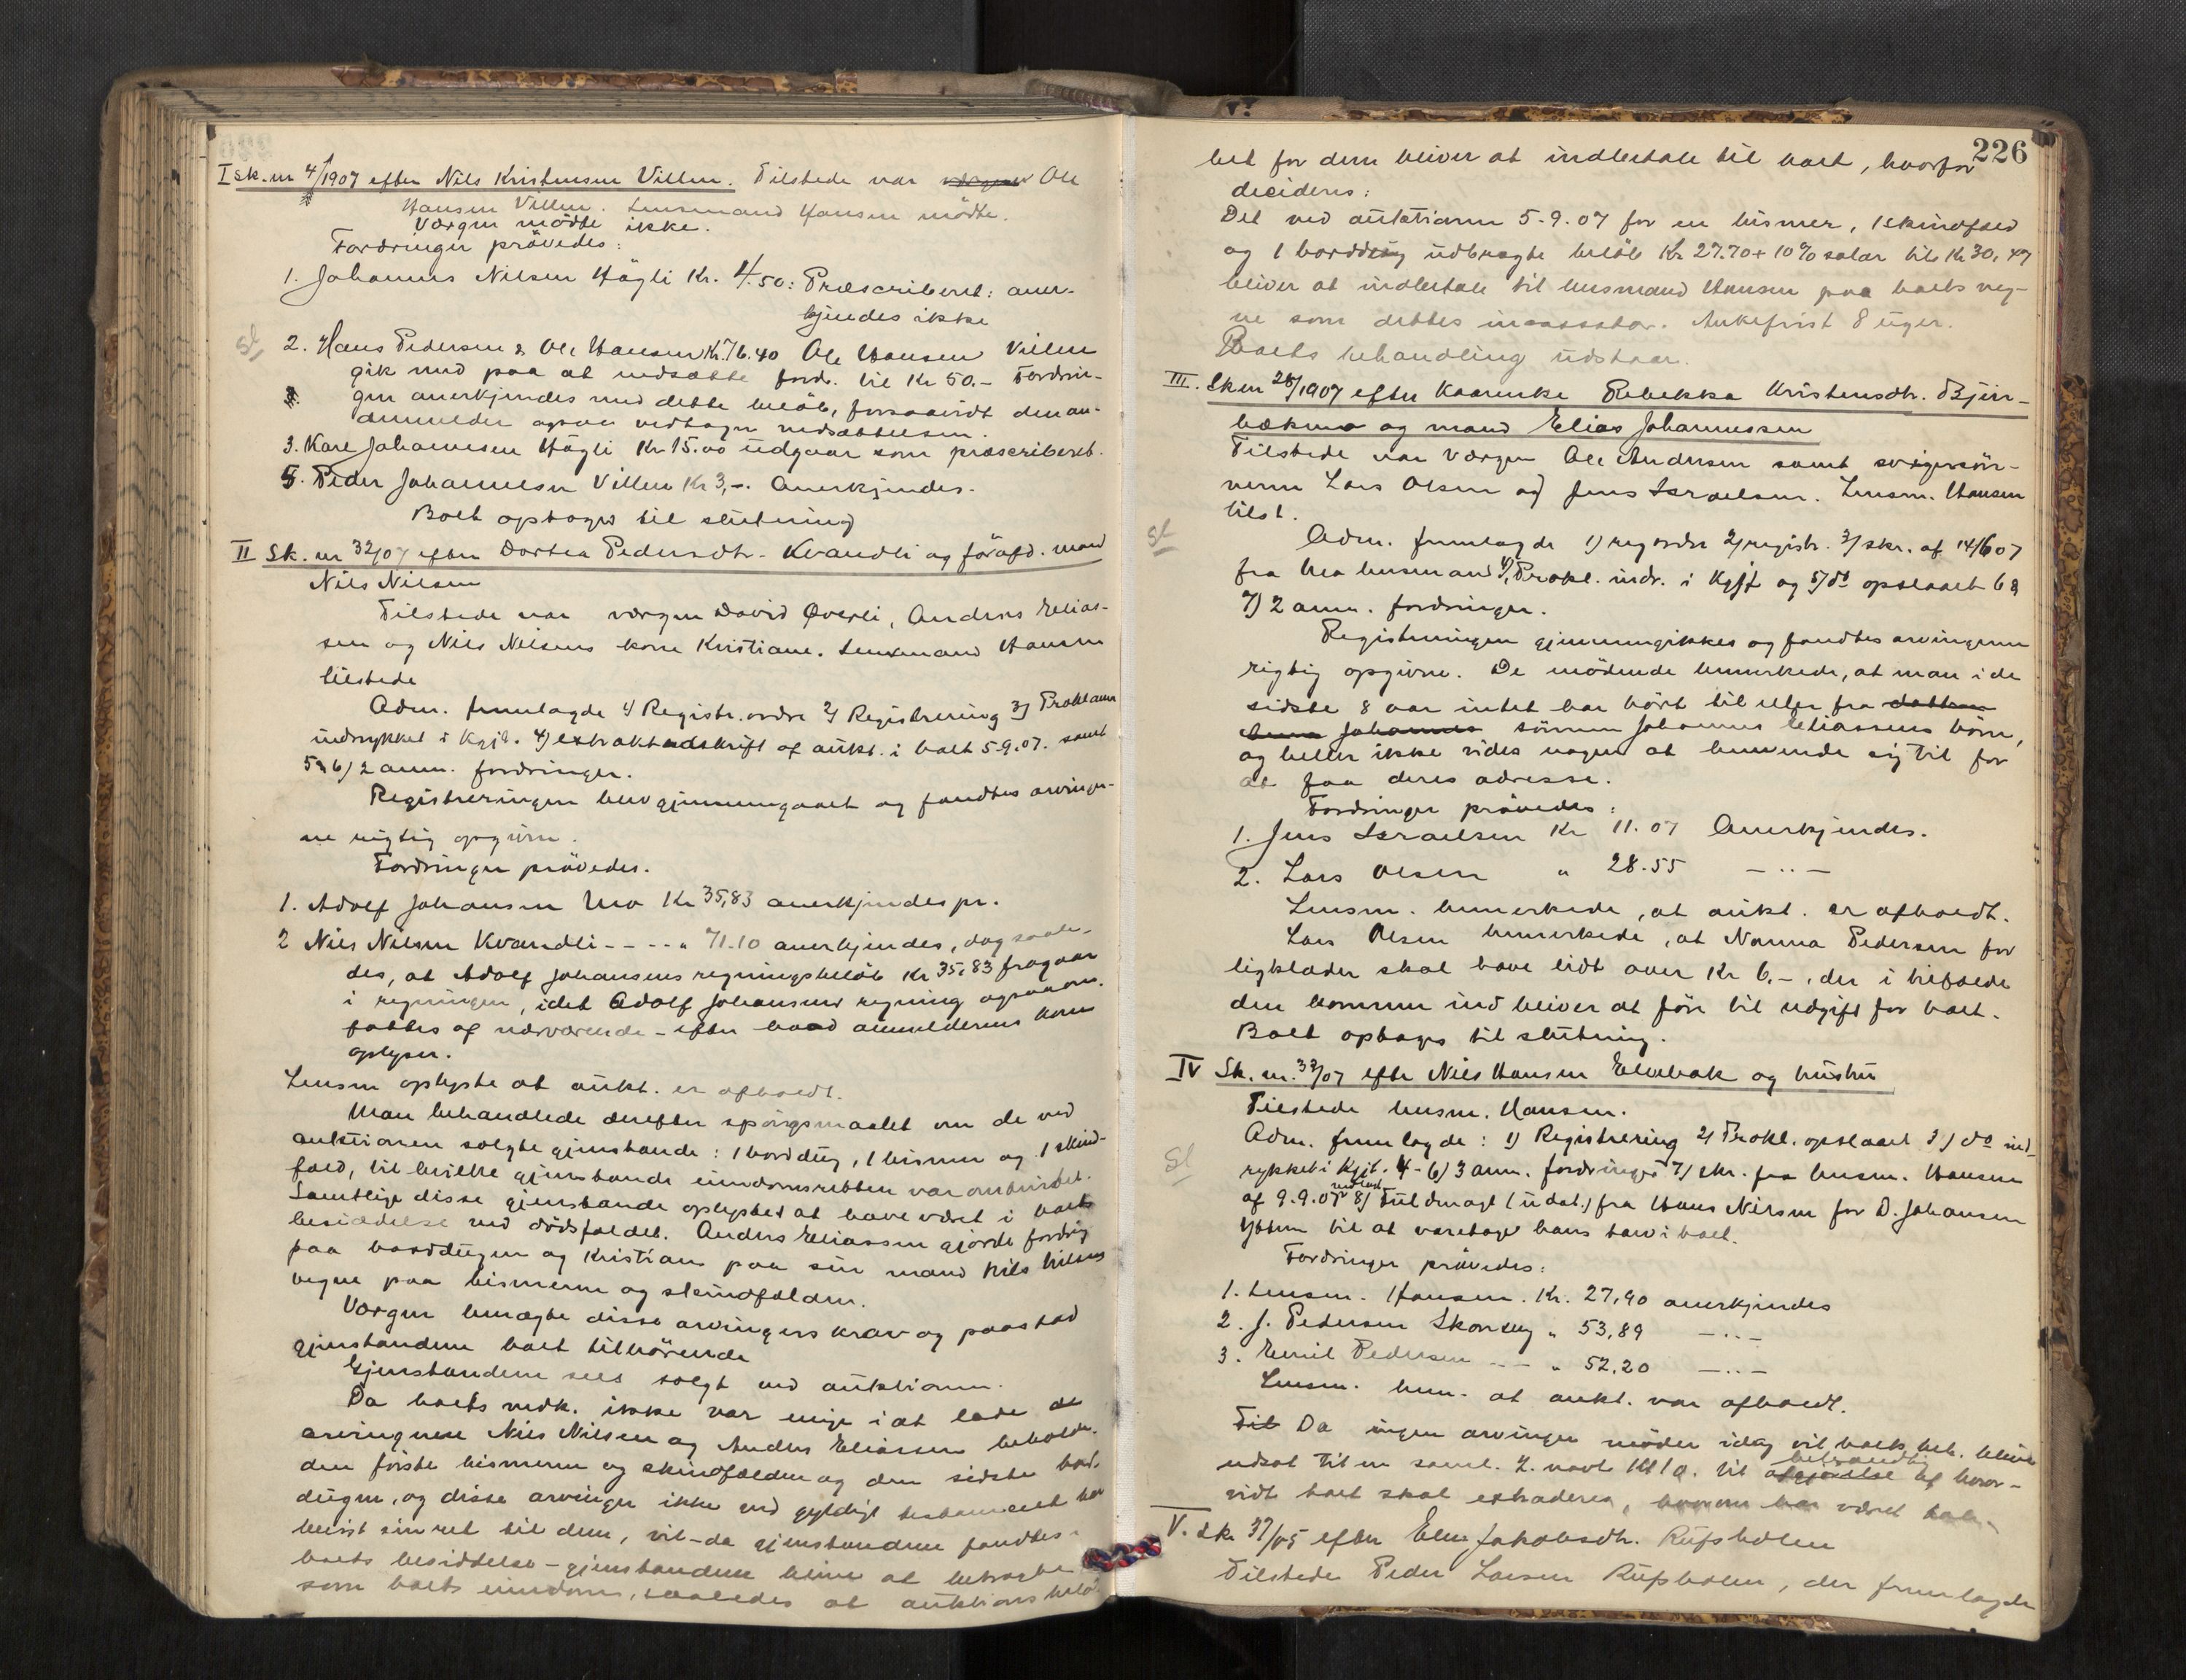 I Sk. nr 4/1907 efter Nils Kristensen Villen. Tilstede var Ole
Hansen Villen. Lensmand Hansen mödte.
Værgen mödte ikke.
Fordringer prövedes:
1. Johannes Nilsen Högli Kr. 4.50: Præscriberet: aner-
kjendes ikke
2. Hans Pedersen & Ole Hansen Kr. 76.40 Ole Hansen Villen
gik med paa at nedsætte fordr. til Kr 50.- Fordrin-
gen anerkjendes med dette belöb, forsaavidt den an-
dmelder ogsaa vedtager nedsættelsen.
3. Karl Johannesen Högli Kr 15.00 udgaar som præscriberet.
5. Peder Johannesen Villen Kr 3,-. Anerkjendes.
Boet optages til slutning
II Sk. nr 32/07 efter Dortea Pedersdtr. Kvandli og föravd. mand
Nils Nilsen
Tilstede var værgen David Øverli, Anders Elias-
sen og Nils Nilsens kone Kristiane. Lensmand Hansen
tilstede
Adm. fremlagde 1) Registr. ordre 2) Registrering 3) Proklama
indrykket i Kgjt. 4) extraktudskrift af aukt. i boet 5-9.07. samt
5 & 6) 2 anm. fordringer.
Registreringen blev gjennemgaaet og fandtes arvinger-
ne rigtig opgivne.
Fordringer prövedes.
1. Adolf Johansen Mo Kr 35,83 anerkjendes pr.
2 Nils Nilsen Kvandli - - - - " 71.10 anerkjendes, dog saale-
des, at Adolf Johansens regningsbelöb Kr 35.83 fragaar
i regningen, idet Adolf Johansens regning ogsaa om-
fattes af nærværende - efter hvad anmelderens kone
oplyser.
Lensm oplyste at aukt. er afholdt.
Man behandlede derefter spörgsmaalet om de ved
auktionen solgte gjenstande: 1 borddug, 1 bismer og 1 skind-
fæld, til hvilke gjenstande eiendomsretten var omtvistet.
Samtlige disse gjenstande oplystes at have været i boets
besiddelse ved dödsfaldet. Anders Eliassen gjorde fordring
paa borddugen og Kristiane paa sin mand Nils Nilsens
vegne paa bismeren og skindfælden.
Værgen benægte disse arvingers krav og paastod
gjenstandene boet tilhörende
Gjenstandene sees solgt ved auktionen.
Da boets vedk. ikke var enige i at lade de
arvingerne Nils Nilsen og Anders Eliassen beholde.
den förste bismeren og skindfælden og den sidste bord-
dugen, og disse arvinger ikke ved gyldigt testament har
bevist sin ret til dem, vil - da gjenstandene fandtes i
boets besiddelse - gjenstandene blive at betragte
som boets eiendom, saaledes at auktionsbelö-
226
bet for dem bliver at indbetale til boet, hvorfor
decideres:
Det ved auktionen 5-9.07 for en bismer, 1 skindfæld
og 1 borddug udbragte belöb Kr 27.70 + 10% salær til Kr 30,47
bliver at indbetale til lensmand Hansen paa boets veg-
ne som dettes incassator. Ankefrist 8 uger.
Boets behandling udstaar.
III. Sk nr 28/1907 efter Kaarenke Rebekka Kristensdtr. Bjer-
bækmo og mand Elias Johannessen
Tilstede var værgen Ole Andersen samt svigersön-
nerne Lars Olsen og Jens Israelsen. Lensm. Hansen
tilst.
Adm. fremlagde 1) reg ordre 2) registr. 3) skr. af 14/6 07
fra Mo lensmand 4) Prokl. indr. i Kgjt og 5) do opslaaet 6 &
7) 2 anm. fordringer.
Registreringen gjennemgikkes og fandtes arvingerne
rigtig opgivne. De mödende bemerkede, at man i de
sidste 8 aar intet har hört til eller fra datteren
Anna Johannes sönnen Johannes Eliassens börn,
og heller ikke vides nogen at henvende sig til for
at faa deres adresse.
Fordringer prövedes:
1. Jens Israelsen Kr 11.07 Anerkjendes.
2. Lars Olsen " 28.55 — .. —
Lensm. bemerkede, at aukt. er afholdt.
Lars Olsen bemerkede, at Nanna Pedersen for
ligklæder skal have lidt over Kr 6.-, der i tilfælde
den kommer ind bliver at före til udgift for boet.
Boet optages til slutning.
IV Sk. nr. 33/07 efter Nils Hansen Elvebak og hustru
Tilstede lensm. Hansen.
Adm. fremlagde: 1) Registrering 2) Prokl. opslaaet 3) do ind-
rykket i Kgjt. 4-6) 3 anm. fordringer 7) skr. fra lensm. Hansen
af 9.9.07 8) Fuldmagt (udat.) fra Hans Nilsen for D. Johansen
Ytteren til at varetage hans tarv i boet.
Fordringer prövedes:
1. Lensm. Hansen. Kr. 27,90 anerkjendes
2. J. Pedersen Skonseng " 53,89 — .. —
3. Emil Pedersen - - - " 52,20 — .. —
Lensm. bem. at aukt. var afholdt.
Til Da ingen arvinger möder idag vil boets beh. blive
behandling
udsat til en saml. 7. novb Kl 10. til afgjörelse af hvor-
vidt boet skal extraderes, været
V. Sk 37/05 efter Elen Jakobsdtr. Rufsholen
Tilstede Peder Larsen Rufsholen, der fremlagde